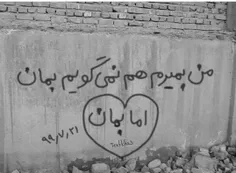 من بمیرم هم نمی گویم بمان
اما بمان
۹۹٫۷٫۲۱